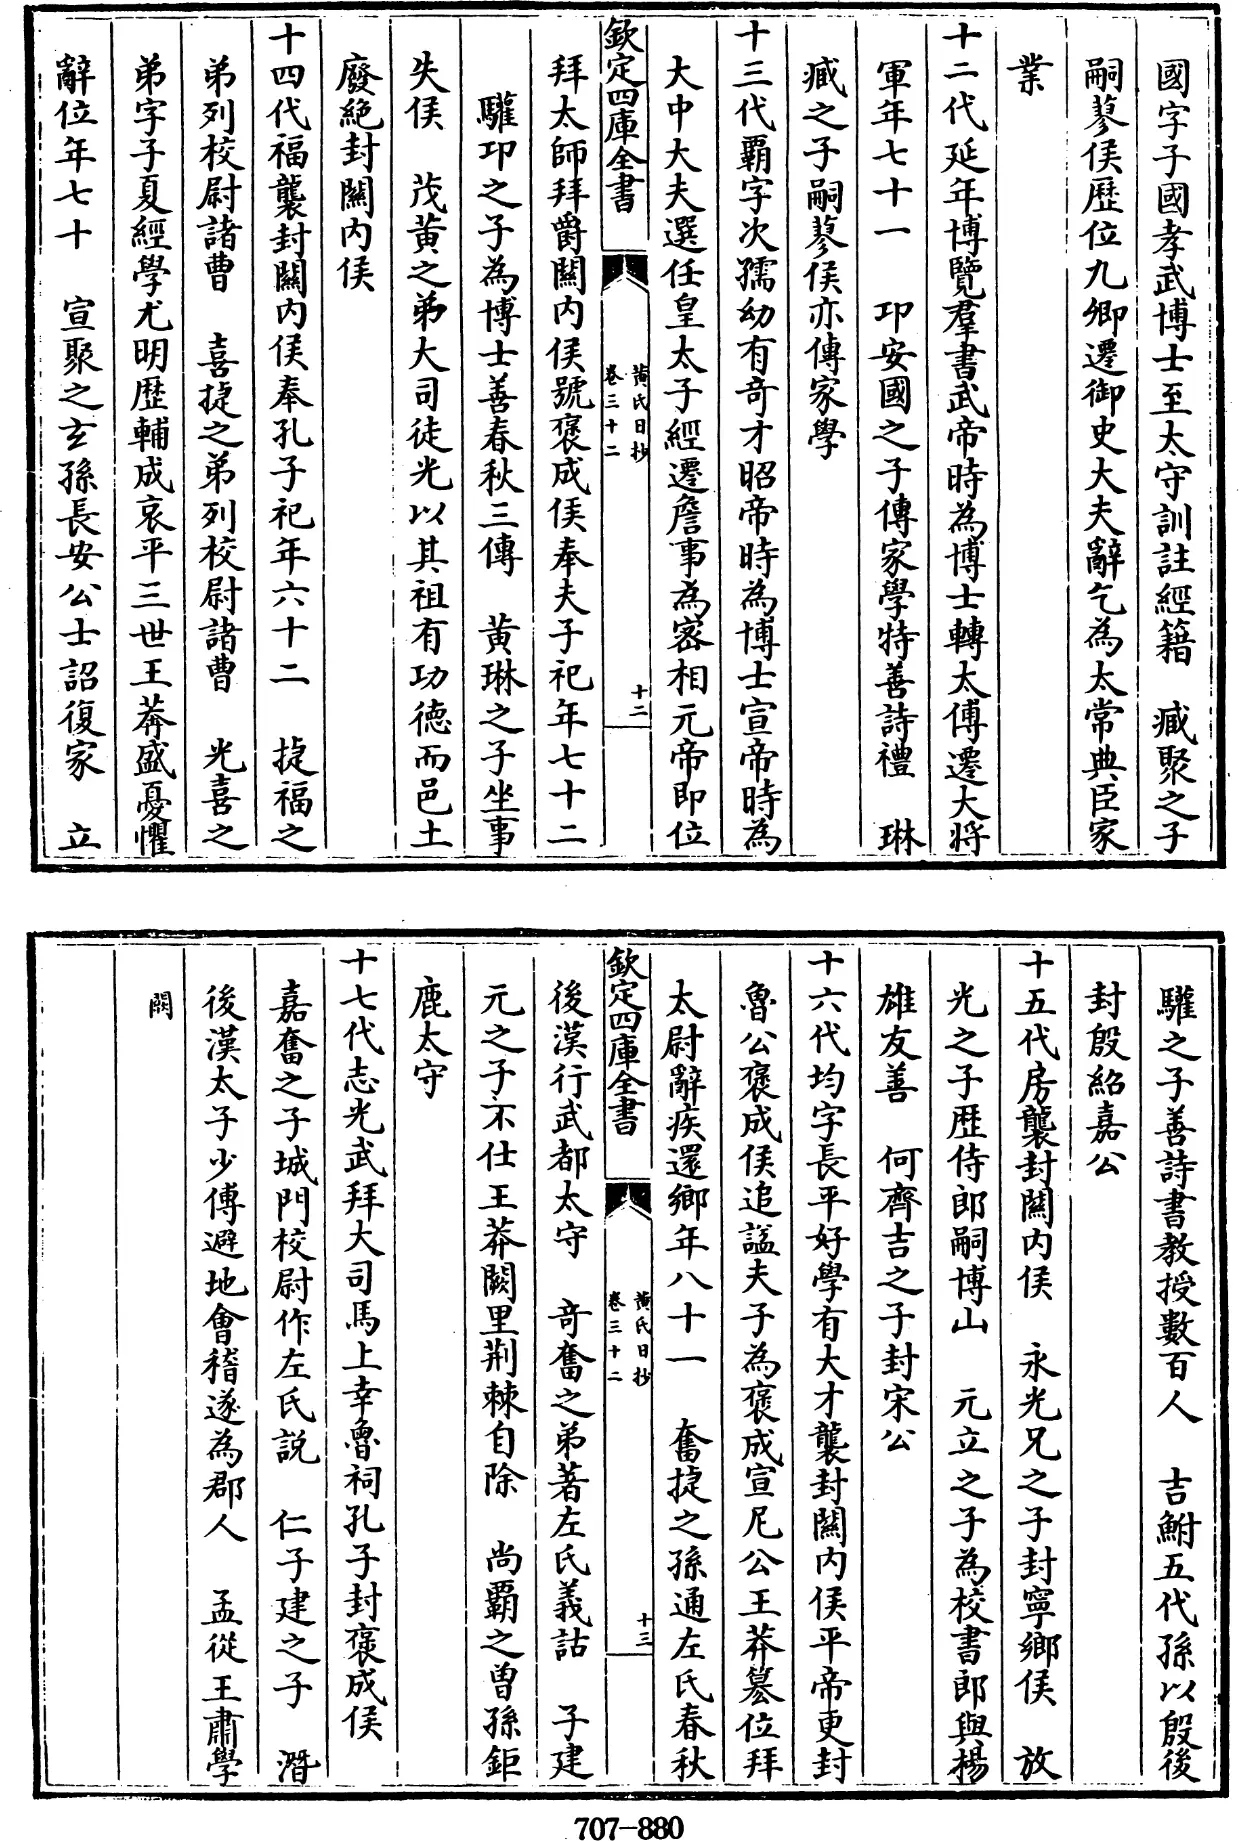 國字子國孝武博士至太守訓註經籍　臧聚之子
嗣蓼侯歷位九卿遷御史大夫辭乞為太常典臣家
業
十二代延年博覽羣書武帝時為博士轉太傅遷大將
軍年七十一　卭安國之子傳家學特善詩禮　琳
臧之子嗣蓼侯亦傳家學
十三代霸字次孺幼有奇才昭帝時為博士宣帝時為
大中大夫選任皇太子經遷詹事為宻相元帝即位
欽定四庫全書
黄氏日抄
卷三十二
十二
拜太師拜爵關内侯號褒成侯奉夫子祀年七十二
驩卭之子為博士善春秋三傳　黄琳之子坐事
失侯　茂黄之弟大司徒光以其祖有功德而邑土
廢絶封關内侯
十四代福襲封關内侯奉孔子祀年六十二　捷福之
弟列校尉諸曹　喜捷之弟列校尉諸曹　光喜之
弟字子夏經學尤明歷輔成哀平三世王莽盛憂懼
辭位年七十　宣聚之玄孫長安公士詔復家　立
驩之子善詩書教授數百人　吉鮒五代孫以殷後
封殷紹嘉公
十五代房襲封關内侯　永光兄之子封寧鄉侯　放
光之子歷侍郎嗣博山　元立之子為校書郎與楊
雄友善　何齊吉之子封宋公
十六代均字長平好學有大才襲封關内侯平帝更封
魯公褒成侯追諡夫子為褒成宣尼公王莽簒位拜
太尉辭疾還鄉年八十一　奮捷之孫通左氏春秋
欽定四庫全書
黄氏日抄
卷三十二
十三
後漢行武都太守　竒奮之弟著左氏義詁　子建
元之子不仕王莽闕里荆棘自除　尚霸之曽孫鉅
鹿太守
十七代志光武拜大司馬上幸魯祠孔子封褒成侯
嘉奮之子城門校尉作左氏説　仁子建之子　潛
後漢太子少傅避地會稽遂為郡人　孟從王肅學
闕
707-880